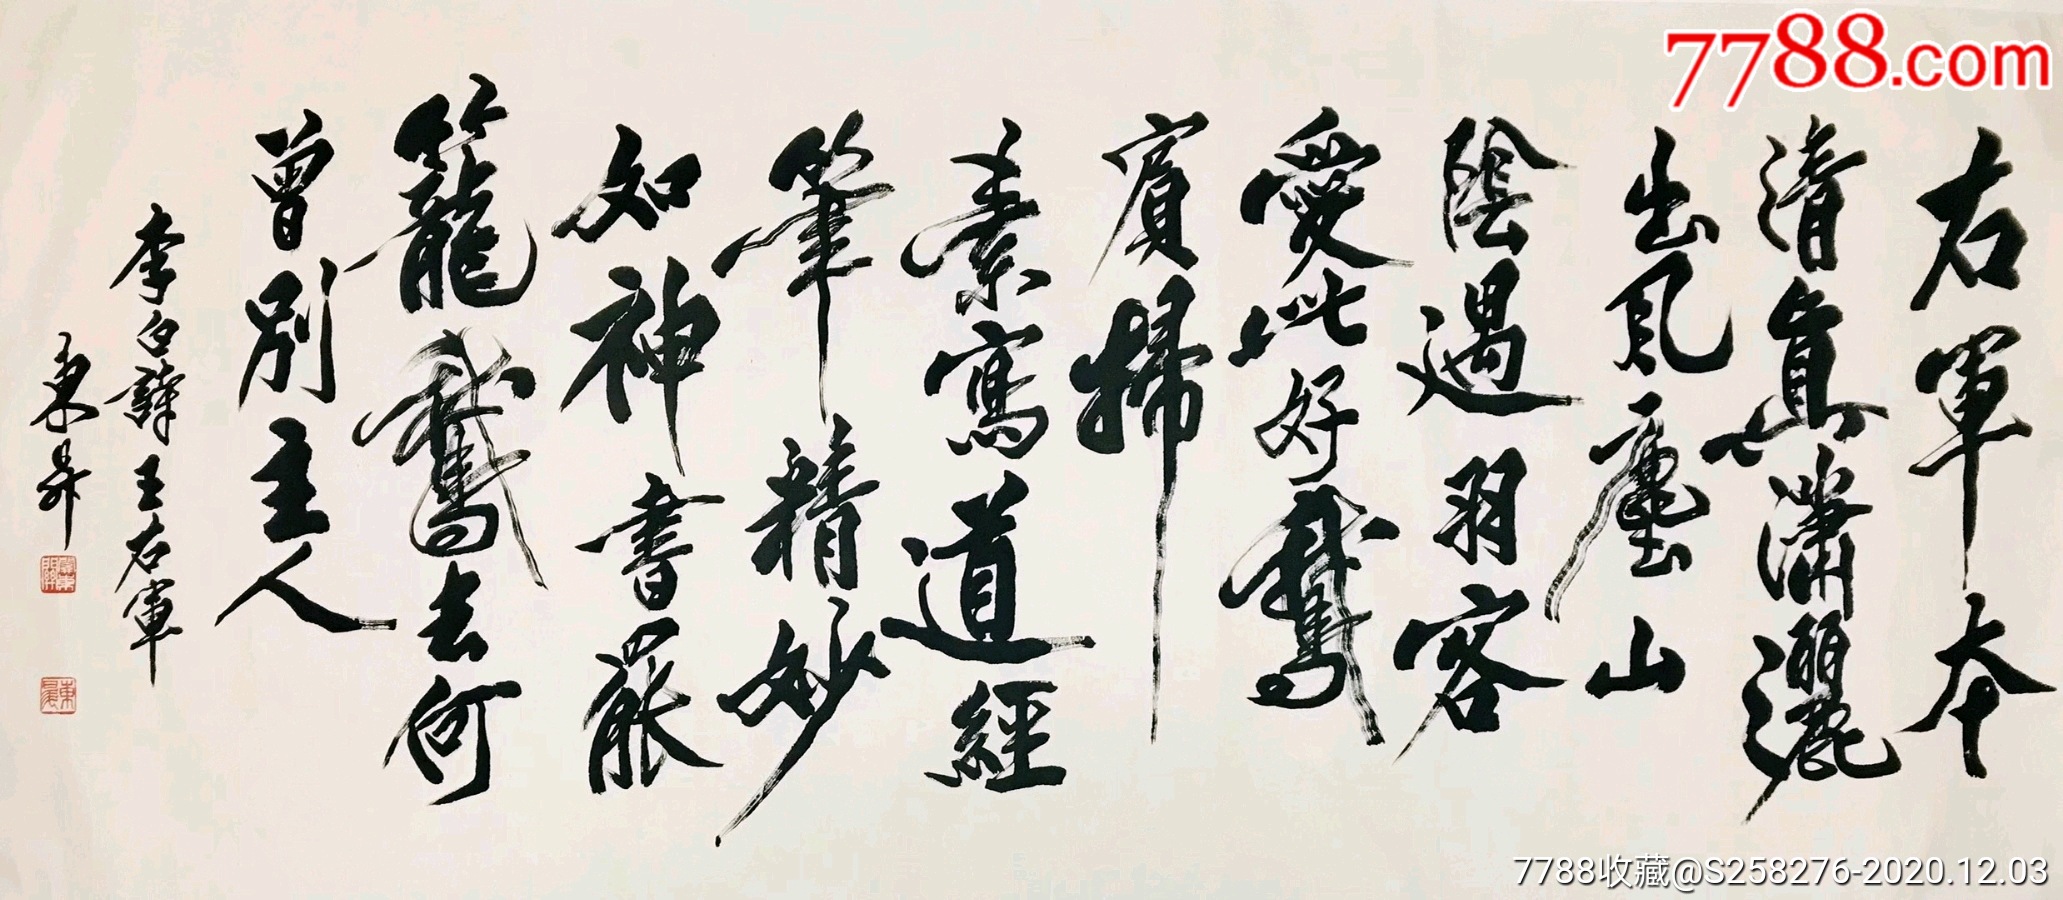 右軍本
清真瀟灑
出風塵山
陰遇羽客
愛此好鵞
賓掃
素寫道經
筆精妙
如神書罷
籠鵞去何
曾別主人
李白詩王右軍
東昇
7788.com
7788收藏@S258276-2020.12.03